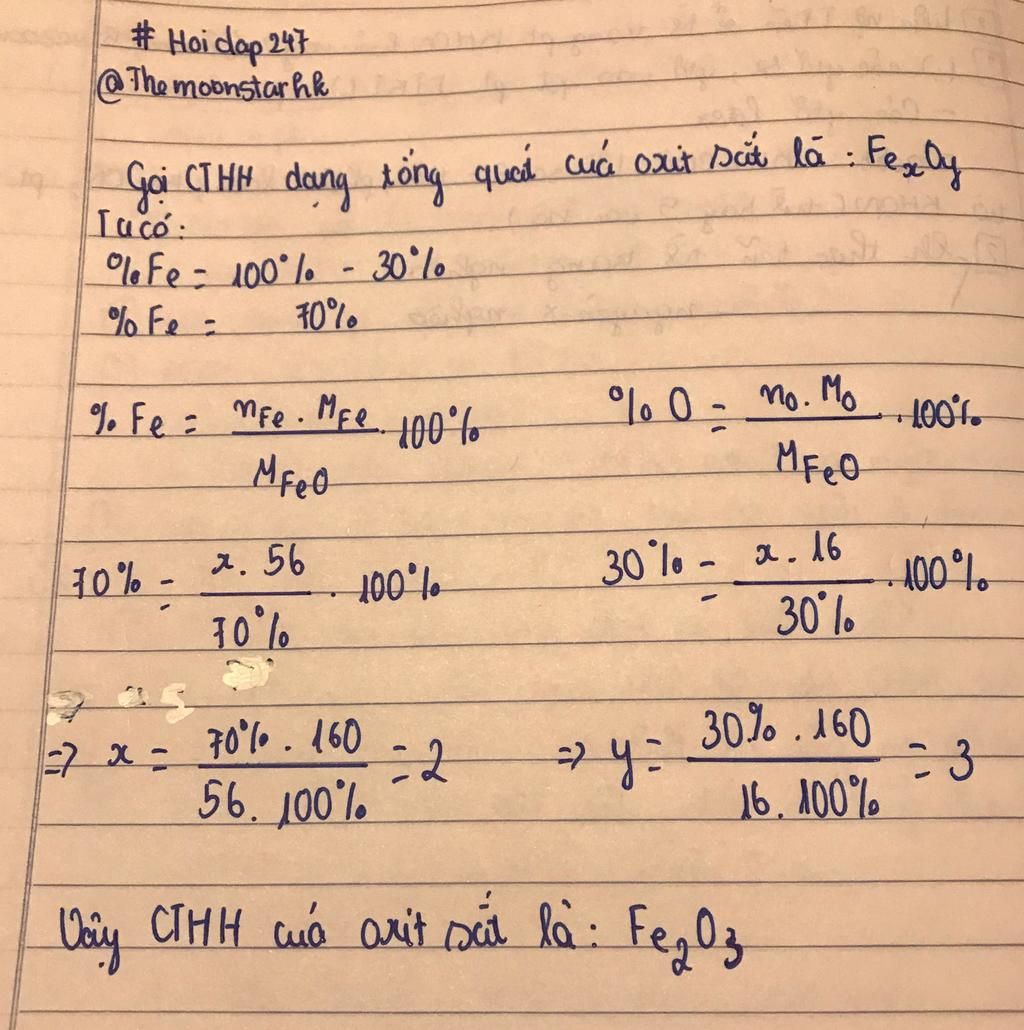 # Hoidap247
@Themoonstarhk
Gọi CTHH dạng tổng quát cuả oxit sắt là : FexOy
Ta có :
%Fe = 100% - 30%
%Fe = 70%
%Fe = nFe . MFe / MFeO . 100%
%O = nO . MO / MFeO . 100%
70% = x . 56 / 70% . 100%
30% = x . 16 / 30% . 100%
=> x = 70% . 160 / 56 . 100% = 2
=> y = 30% . 160 / 16 . 100% = 3
Vậy CTHH cuả oxit sắt là : Fe2O3